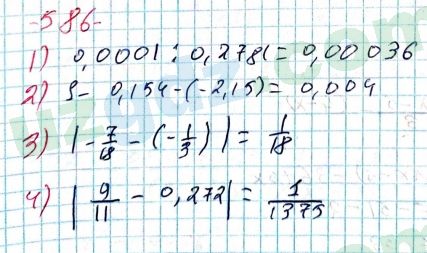 -586-
1) 0,0001 : 0,2781 = 0,00036
2) 9- 0,154-(-2,15)= 0,004
3) |-7/18 - (-1/3)| = 1/18
4) |9/11 - 0,272| = 1/1375